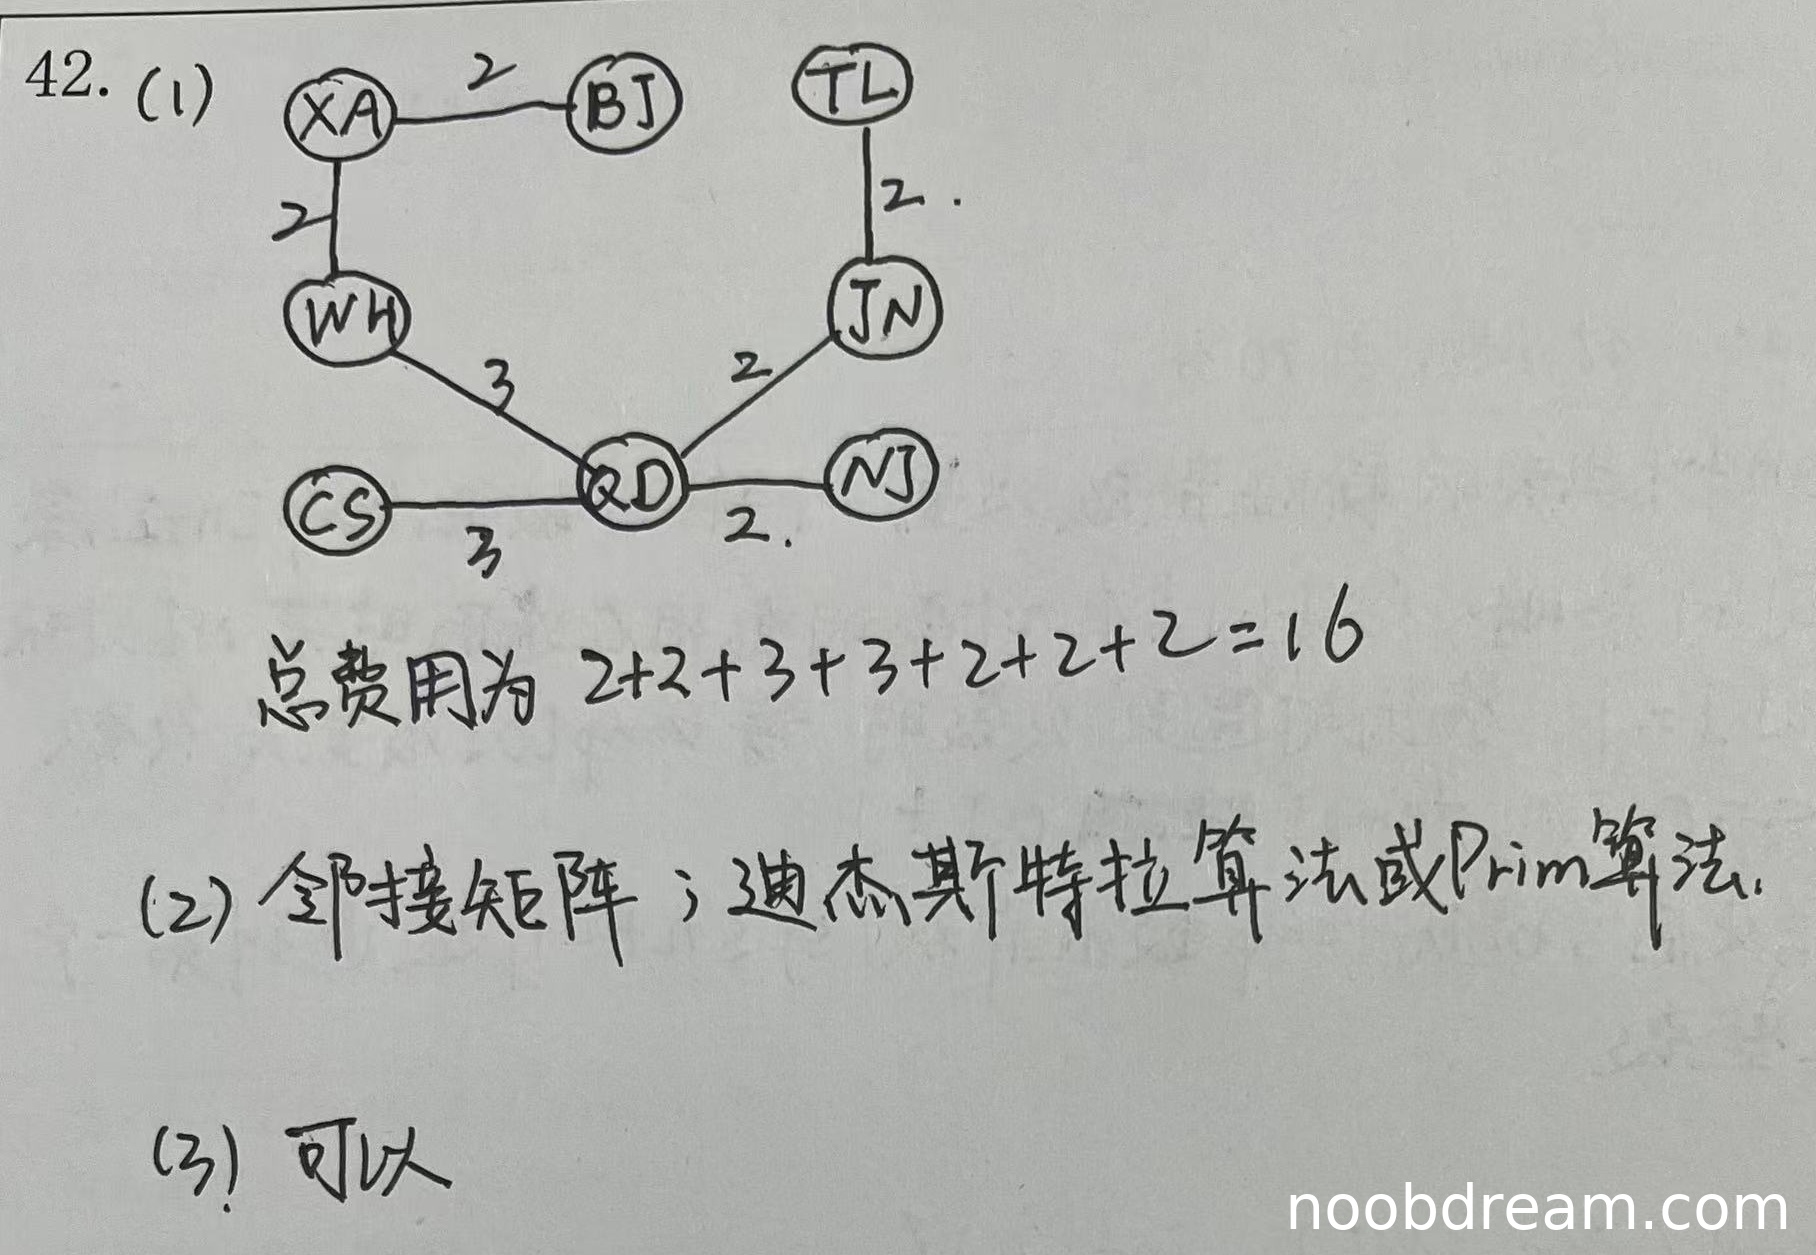 42. (1) XA 2 BJ TL
2 2.
WH JN
3 2
CS QD NJ
3 2.
总费用为 2+2+3+3+2+2+2=16
(2) 邻接矩阵；迪杰斯特拉算法或Prim算法.
(3) 可以
noobdream.com